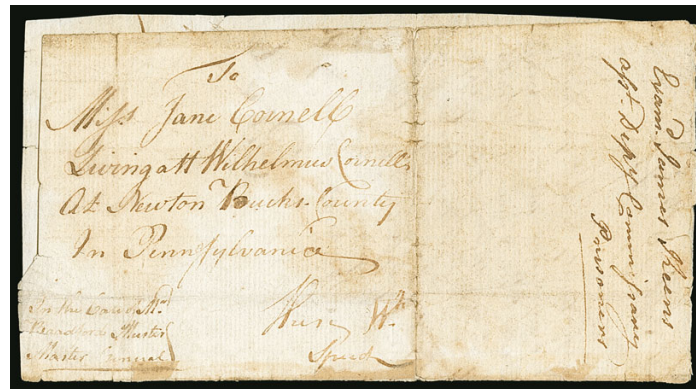 To
Miss Jane Cornell
Living att Wilhelmus Cornells
At Newton Bucks County
In Pennsylvania
In the Care of Mr
Bradford Muster
Master General
With
Speed
Examd James Skeens
asst Depy Commissary
Prisoners